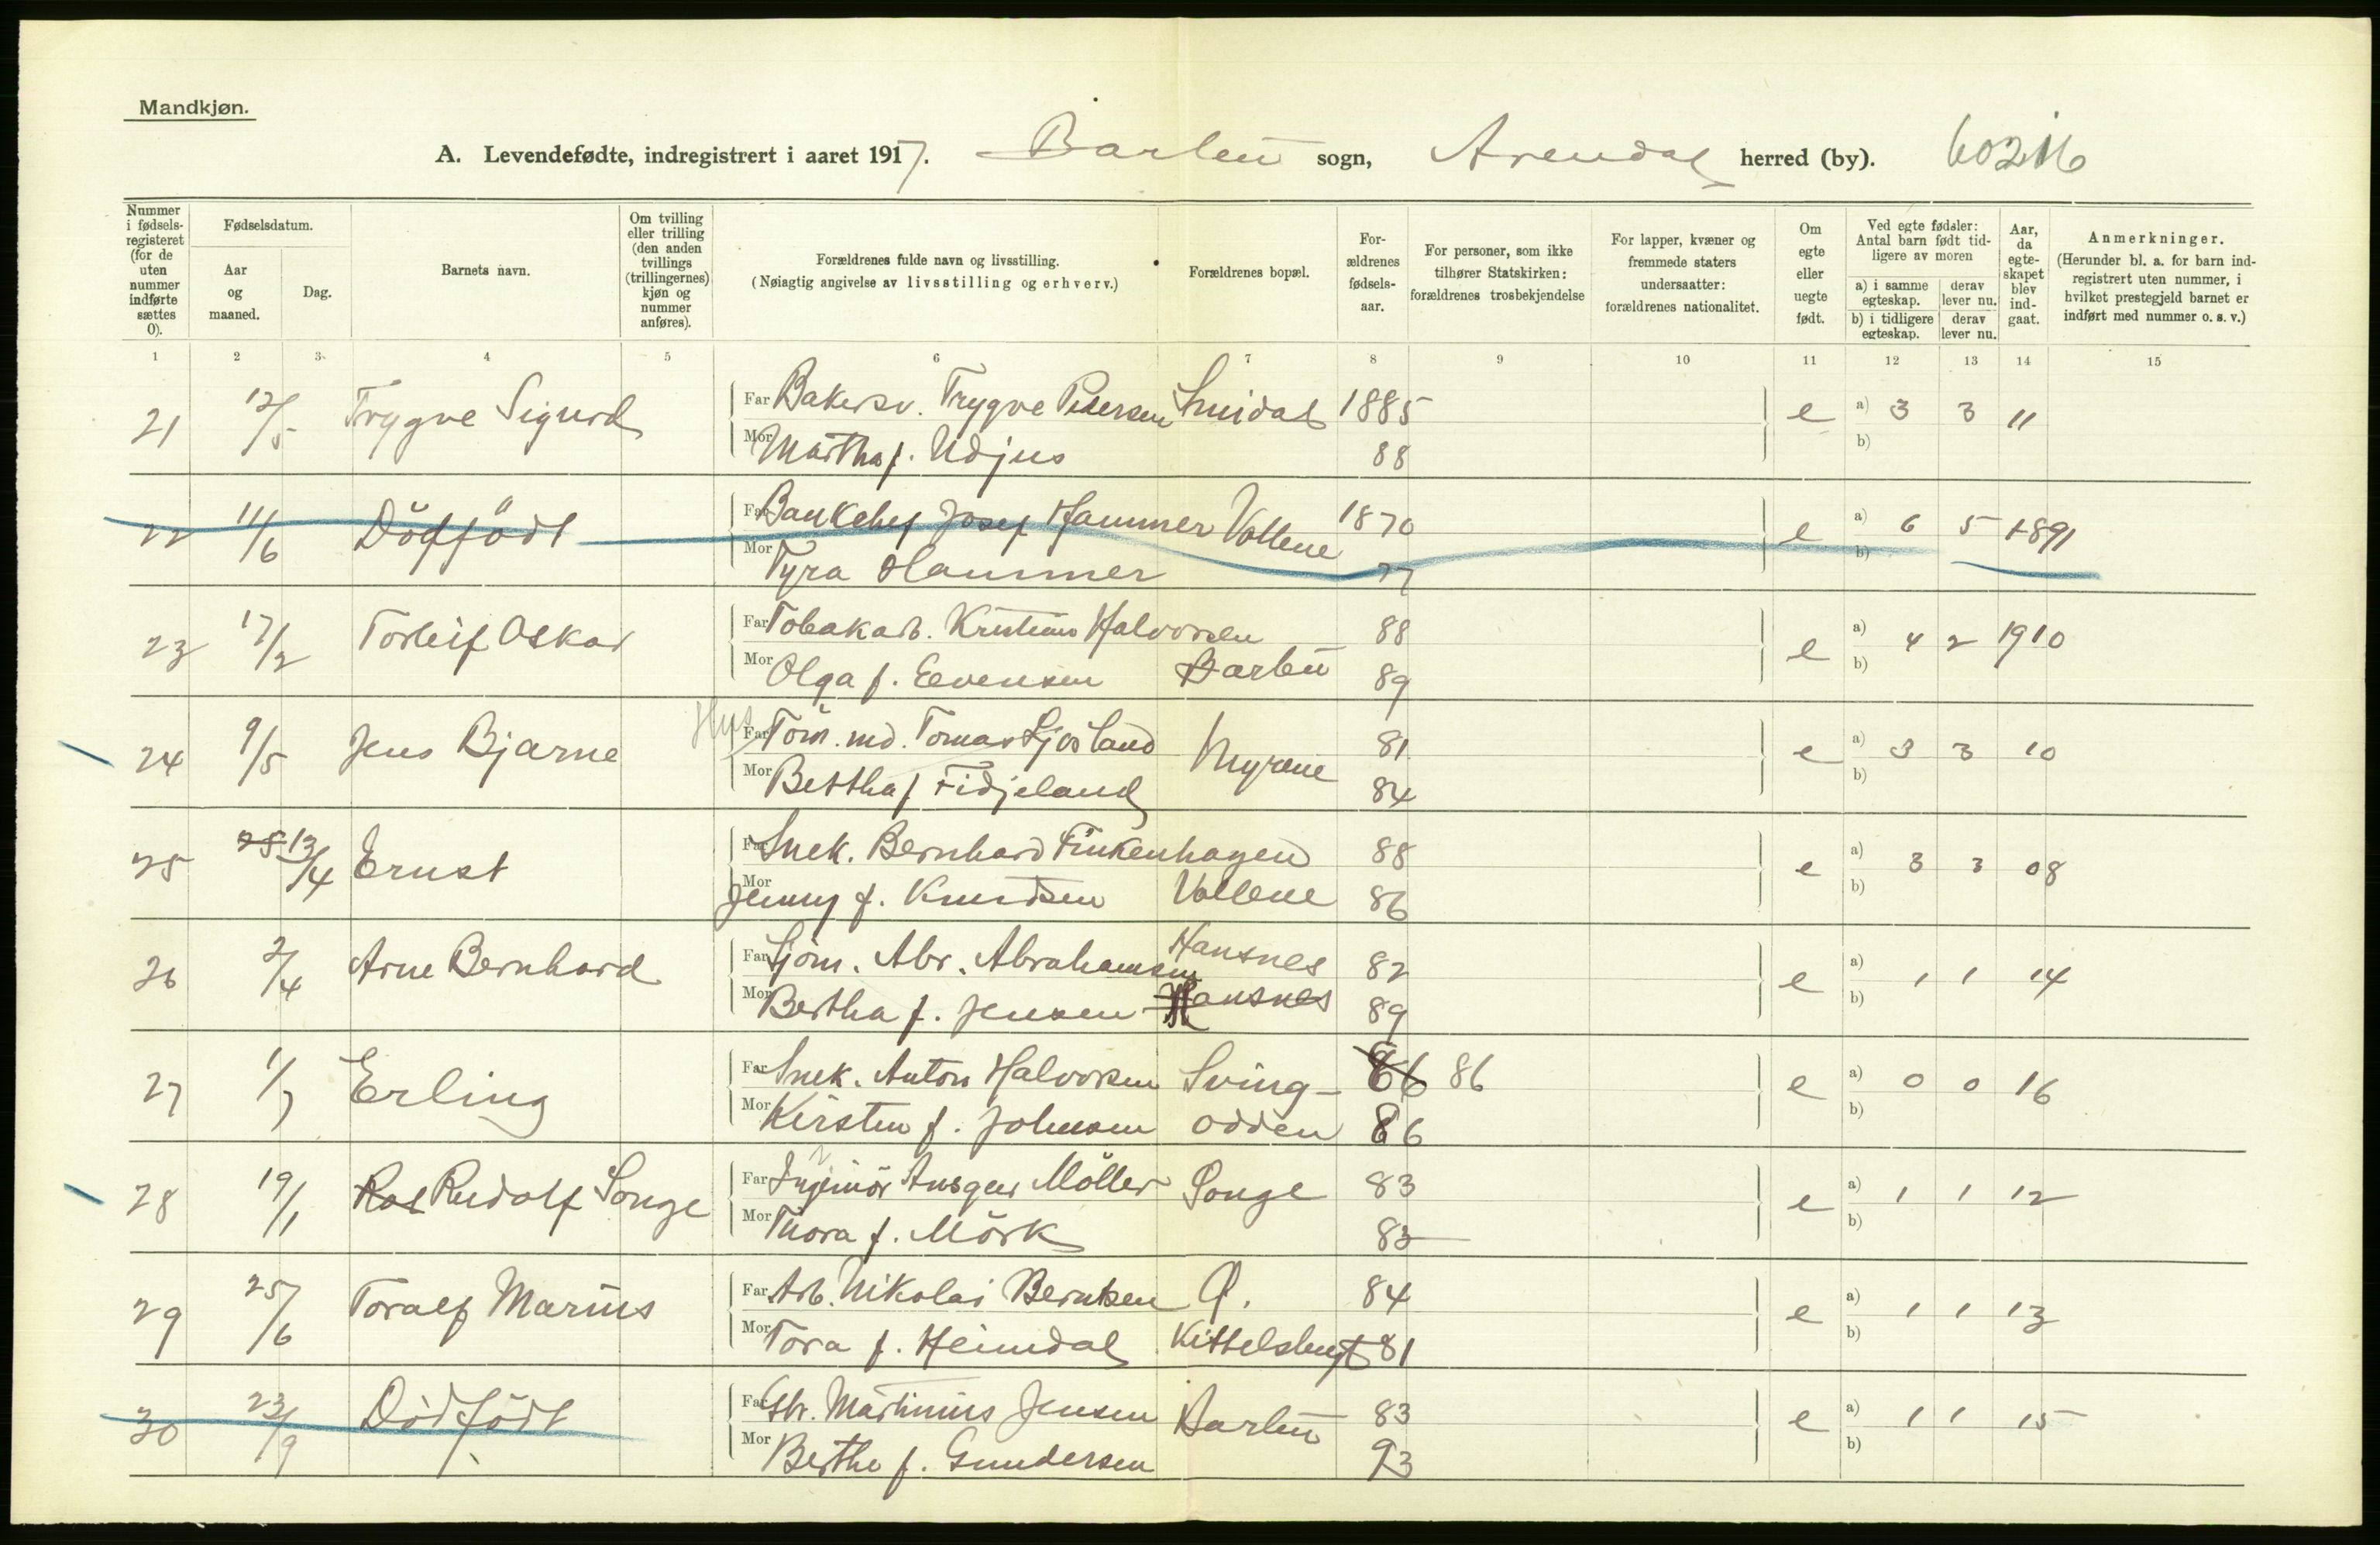 Mandkjøn.
A. Levendefødte, indregistrert i aaret 1917. Barbu sogn, Arendal herred (by). 
Nummer i fødselsregisteret (for de uten nummer indførte sættes 0).
Fødselsdatum.
Aar og maaned.
Dag.
Barnets navn.
Om tvilling eller trilling (den anden tvillings (trillingernes) kjøn og nummer anføres).
Forældrenes fulde navn og livsstilling.
(Nøiagtig angivelse av livsstilling og erhverv.)
Forældrenes bopæl.
For-ældrenes fødsels-aar.
For personer, som ikke tilhører Statskirken: forældrenes trosbekjendelse
For lapper, kvæner og fremmede staters undersaatter: forældrenes nationalitet.
Om egte eller uegte født.
Ved egte fødsler: Antal barn født tidligere av moren
a) i samme egteskap. derav lever nu.
b) i tidligere egteskap. derav lever nu.
Aar, da egteskapet blev indgaat.
Anmerkninger.
(Herunder bl. a. for barn indregistrert uten nummer, i hvilket prestegjeld barnet er indført med nummer o. s. v.)
1 2 3 4 5 6 7 8 9 10 11 12 13 14 15
21 12/5 Trygve Sigurd Far Bakersv. Trygve Pedersen 1885 e a) 3 3 11
Mor Martha f. Udjus 88 b)
22 11/6 Dödfödt Far Bankchef Josef Hammer Vollene 1870 e a) 6 5 1891
Mor Tyra Hammer 77 b)
23 17/2 Torleif Oskar Far Tobakarb. Kristians Halvorsen 88 e a) 4 2 1910
Mor Olga f. Evensen Barbu 89 b)
24 9/5 Jens Bjarne Hus Far Töm.md. Tomas Ljosland Myrene 81 e a) 3 3 10
Mor Bertha f Fidjeland 84 b)
25 28 13/4 Ernst Far Snek. Bernhard Finkenhagen 88 e a) 3 3 08
Mor Jenny f. Knudsen Vollene 86 b)
26 2/4 Arne Bernhard Far Sjöm. Abr. Abrahamsen Hansnes 82 e a) 1 1 14
Mor Bertha f. Jensen Hansnes 89 b)
27 1/7 Erling Far Snek. Anton Halvorsen Sving- 66 86 e a) 0 0 16
Mor Kirsten f. Johnsen odden 86 b)
28 19/1 Rudolf Songe Far Ingeniör Ansgar Möller Songe 83 e a) 1 1 12
Mor Thora f. Mörk 83 b)
29 25/6 Toralf Marius Far Arb. Nikolai Berntsen Ø. 84 e a) 1 1 13
Mor Tora f. Heimdal Kittelsbugt 81 b)
30 23/9 Dödfödt Far Martinius Jensen Barbu 83 e a) 1 1 15
Mor Berthe f. Gundersen 93 b)